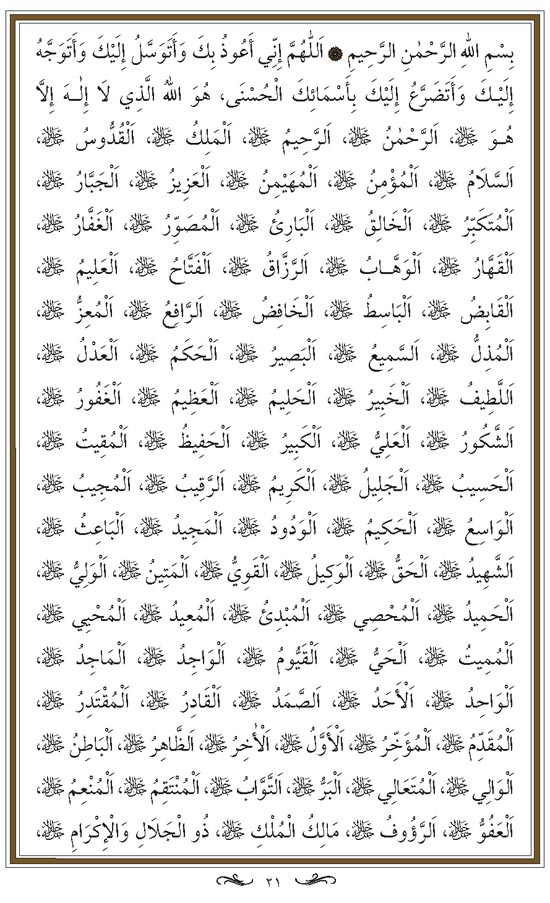 بِسْمِ اللهِ الرَّحْمٰنِ الرَّحِيمِ ۞ اَللّٰهُمَّ إِنِّي أَعُوذُ بِكَ وَأَتَوَسَّلُ إِلَيْكَ وَأَتَوَجَّهُ
إِلَيْكَ وَأَتَضَرَّعُ إِلَيْكَ بِأَسْمَائِكَ الْحُسْنَى، هُوَ اللهُ الَّذِي لَا إِلٰهَ إِلَّا
هُوَ ﷻ، اَلرَّحْمٰنُ ﷻ، اَلرَّحِيمُ ﷻ، اَلْمَلِكُ ﷻ، اَلْقُدُّوسُ ﷻ،
اَلسَّلَامُ ﷻ، اَلْمُؤْمِنُ ﷻ، اَلْمُهَيْمِنُ ﷻ، اَلْعَزِيزُ ﷻ، اَلْجَبَّارُ ﷻ،
اَلْمُتَكَبِّرُ ﷻ، اَلْخَالِقُ ﷻ، اَلْبَارِئُ ﷻ، اَلْمُصَوِّرُ ﷻ، اَلْغَفَّارُ ﷻ،
اَلْقَهَّارُ ﷻ، اَلْوَهَّابُ ﷻ، اَلرَّزَّاقُ ﷻ، اَلْفَتَّاحُ ﷻ، اَلْعَلِيمُ ﷻ،
اَلْقَابِضُ ﷻ، اَلْبَاسِطُ ﷻ، اَلْخَافِضُ ﷻ، اَلرَّافِعُ ﷻ، اَلْمُعِزُّ ﷻ،
اَلْمُذِلُّ ﷻ، اَلسَّمِيعُ ﷻ، اَلْبَصِيرُ ﷻ، اَلْحَكَمُ ﷻ، اَلْعَدْلُ ﷻ،
اَللَّطِيفُ ﷻ، اَلْخَبِيرُ ﷻ، اَلْحَلِيمُ ﷻ، اَلْعَظِيمُ ﷻ، اَلْغَفُورُ ﷻ،
اَلشَّكُورُ ﷻ، اَلْعَلِيُّ ﷻ، اَلْكَبِيرُ ﷻ، اَلْحَفِيظُ ﷻ، اَلْمُقِيتُ ﷻ،
اَلْحَسِيبُ ﷻ، اَلْجَلِيلُ ﷻ، اَلْكَرِيمُ ﷻ، اَلرَّقِيبُ ﷻ، اَلْمُجِيبُ ﷻ،
اَلْوَاسِعُ ﷻ، اَلْحَكِيمُ ﷻ، اَلْوَدُودُ ﷻ، اَلْمَجِيدُ ﷻ، اَلْبَاعِثُ ﷻ،
اَلشَّهِيدُ ﷻ، اَلْحَقُّ ﷻ، اَلْوَكِيلُ ﷻ، اَلْقَوِيُّ ﷻ، اَلْمَتِينُ ﷻ، اَلْوَلِيُّ ﷻ،
اَلْحَمِيدُ ﷻ، اَلْمُحْصِي ﷻ، اَلْمُبْدِئُ ﷻ، اَلْمُعِيدُ ﷻ، اَلْمُحْيِي ﷻ،
اَلْمُمِيتُ ﷻ، اَلْحَيُّ ﷻ، اَلْقَيُّومُ ﷻ، اَلْوَاجِدُ ﷻ، اَلْمَاجِدُ ﷻ،
اَلْوَاحِدُ ﷻ، اَلْأَحَدُ ﷻ، اَلصَّمَدُ ﷻ، اَلْقَادِرُ ﷻ، اَلْمُقْتَدِرُ ﷻ،
اَلْمُقَدِّمُ ﷻ، اَلْمُؤَخِّرُ ﷻ، اَلْأَوَّلُ ﷻ، اَلْأٰخِرُ ﷻ، اَلظَّاهِرُ ﷻ، اَلْبَاطِنُ ﷻ،
اَلْوَالِي ﷻ، اَلْمُتَعَالِي ﷻ، اَلْبَرُّ ﷻ، اَلتَّوَّابُ ﷻ، اَلْمُنْتَقِمُ ﷻ، اَلْمُنْعِمُ ﷻ،
اَلْعَفُوُّ ﷻ، اَلرَّؤُوفُ ﷻ، مَالِكُ الْمُلْكِ ﷻ، ذُو الْجَلَالِ وَالْإِكْرَامِ ﷻ،
٢١